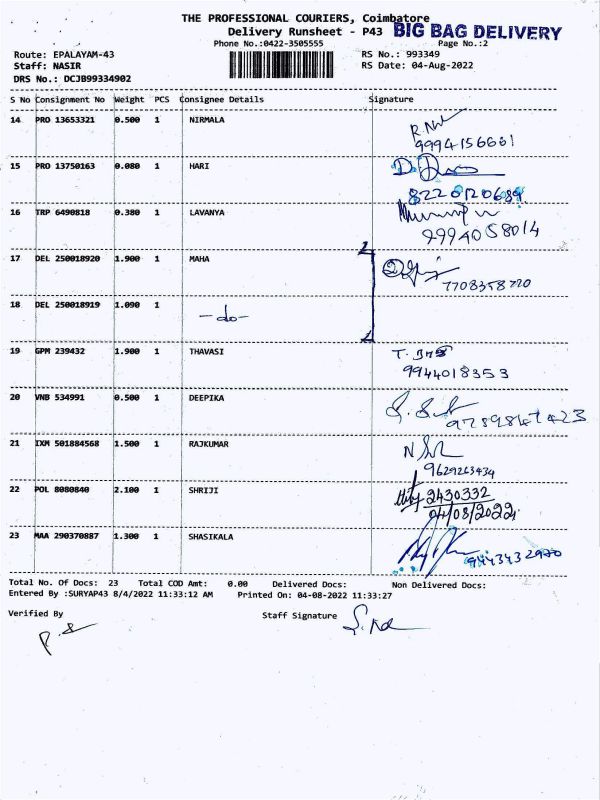 THE PROFESSIONAL COURIERS, Coimbatore
Delivery Runsheet - P43 BIG BAG DELIVERY
Phone No.:0422-3505555 Page No.:2
Route: EPALAYAM-43 RS No.: 993349
Staff: NASIR RS Date: 04-Aug-2022
DRS No.: DCJB99334902
S No Consignment No Weight PCS Consignee Details Signature
14 PRO 13653321 0.500 1 NIRMALA
9994156661
15 PRO 13750163 0.080 1 HARI
8220120689
16 TRP 6490818 0.380 1 LAVANYA
9994058014
17 DEL 250018920 1.900 1 MAHA
7708358720
18 DEL 250018919 1.090 1 -do-
19 GPM 239432 1.900 1 THAVASI
9944018353
20 VNB 534991 0.500 1 DEEPIKA
21 IXM 501884568 1.500 1 RAJKUMAR
9629263434
22 POL 8080840 2.100 1 SHRIJI 2430332
04/08/2022
23 MAA 290370887 1.300 1 SHASIKALA
9443432970
Total No. Of Docs: 23 Total COD Amt: 0.00 Delivered Docs: Non Delivered Docs:
Entered By :SURYAP43 8/4/2022 11:33:12 AM Printed On: 04-08-2022 11:33:27
Verified By Staff Signature